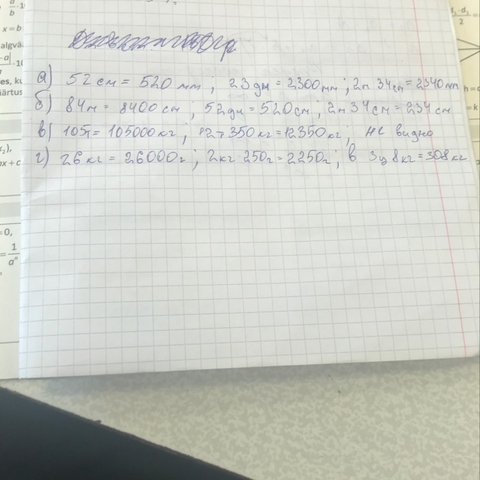 а) 52 см = 520 мм ; 23 дм = 2300 мм ; 2м 34 см = 2340 мм
б) 84 м = 8400 см ; 52 дм = 520 см ; 2 м 34 см = 234 см
в) 105т = 105000 кг ; 12т 350 кг = 12350 кг , не видно
г) 26 кг = 26000 г ; 2 кг 250г = 2250г ; в 3ц 8 кг = 308 кг